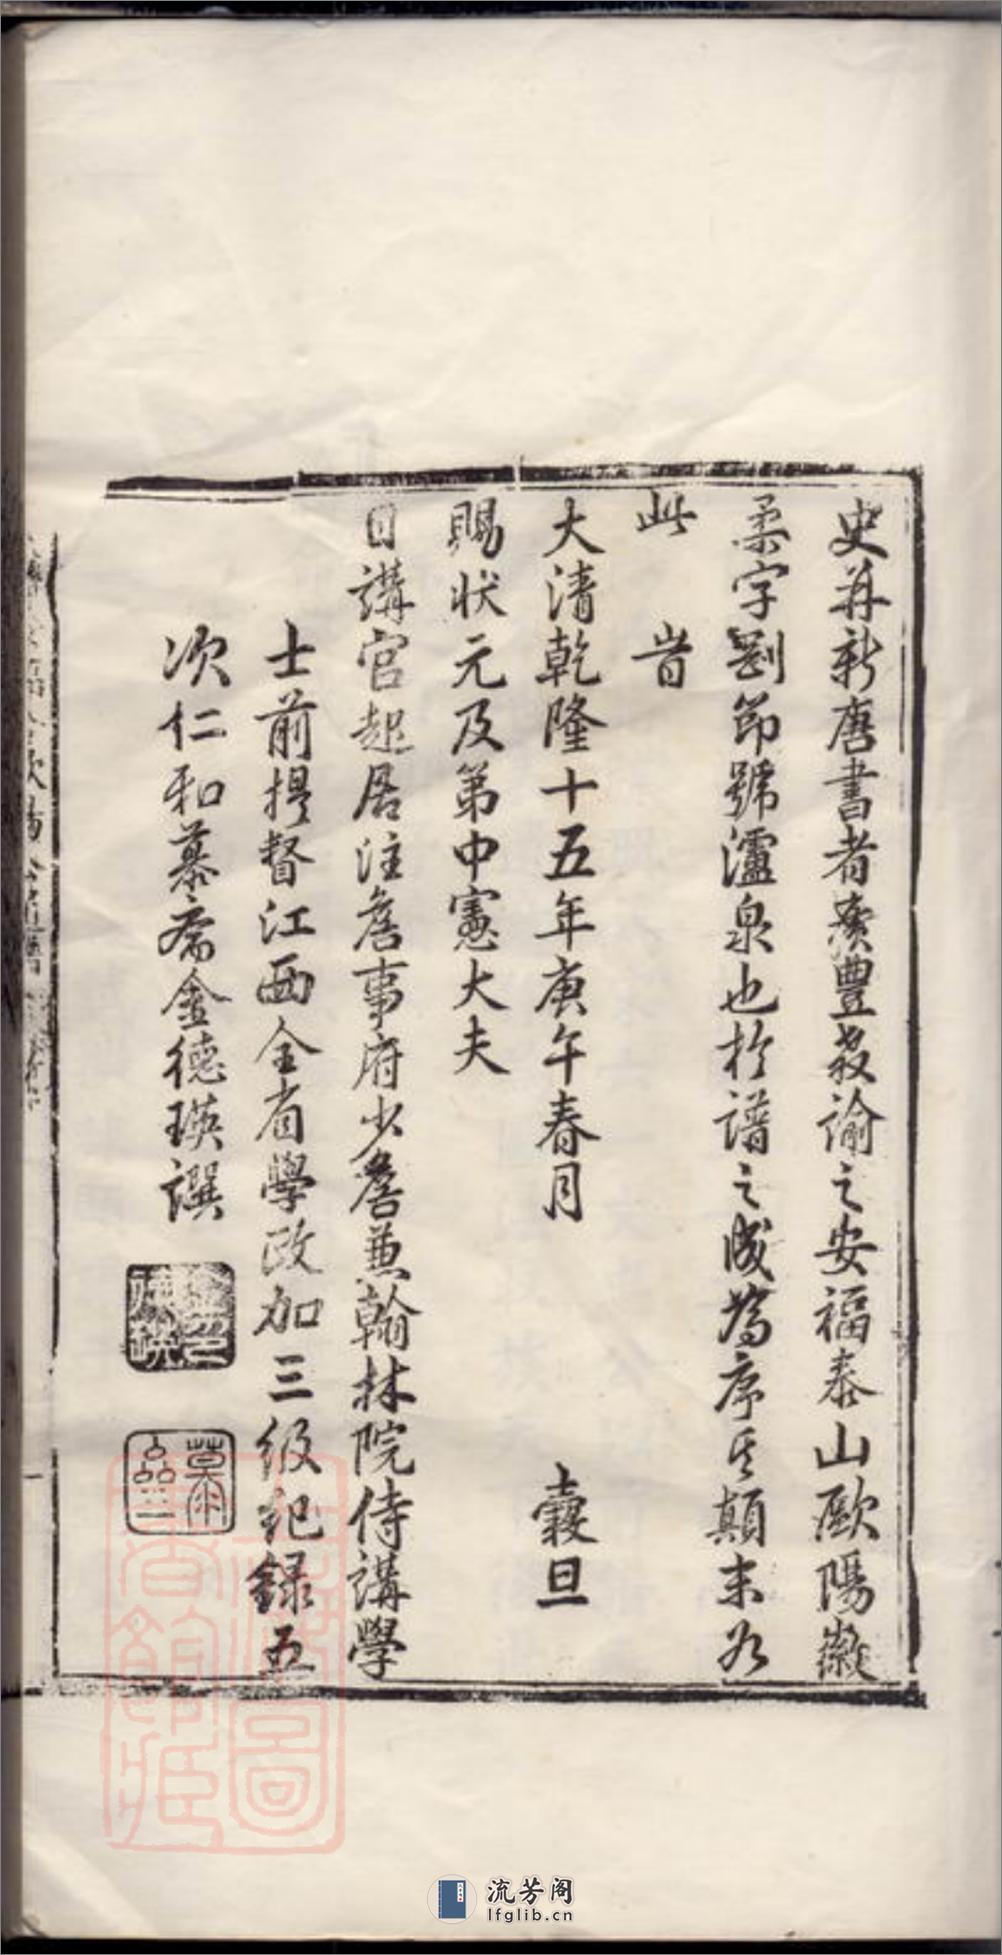 史并新唐書者廣豐教諭之安福泰山歐陽徽
柔字剛節號瀘泉也於譜之成為序其顛末如
此 旹
大清乾隆十五年庚午春月 穀旦
賜狀元及第中憲大夫
日講官起居注詹事府少詹兼翰林院侍講學
士前提督江西全省學政加三級紀錄五
次仁和慕齋金德瑛譔
金德瑛
流芳阁
lfglib.cn